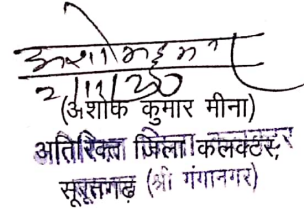 2/11/20
(अशोक कुमार मीना)
अतिरिक्त जिला कलक्टर,
सूरतगढ़ (श्री गंगानगर)